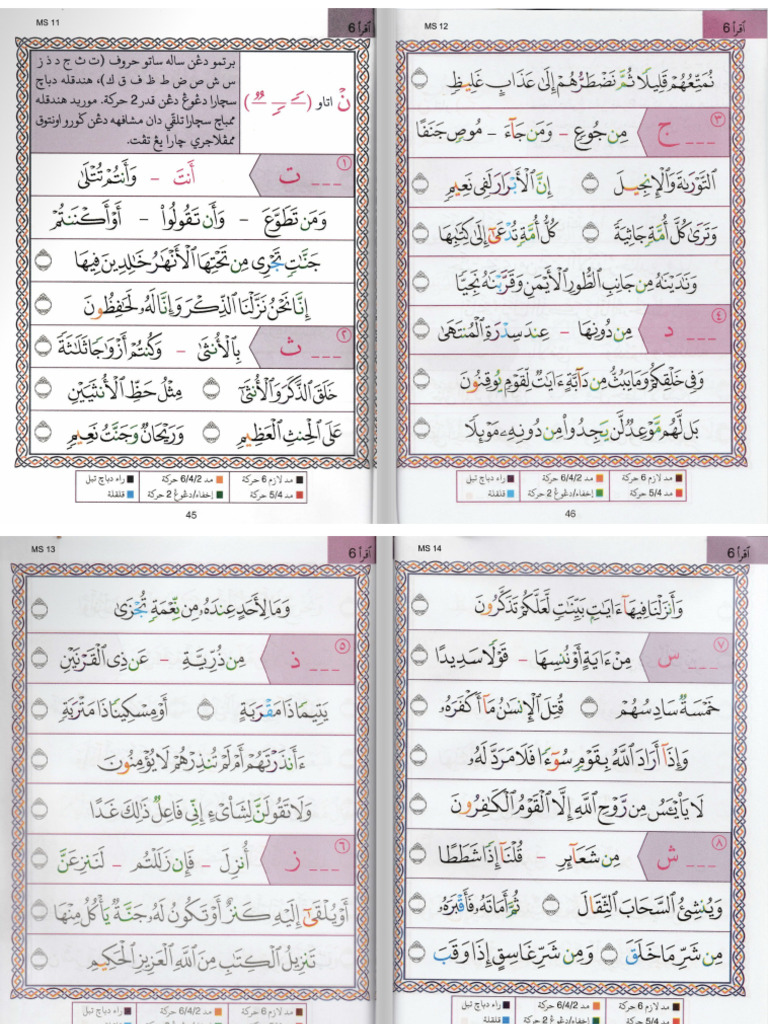 MS 11
اقرأ 6
برتمو دڠن ساله ساتو حروف (ت ث ج د ذ ز
س ش ص ض ط ظ ف ق ك)، هندقله دباچ
سچارا دڠوڠ دڠن قدر 2 حركة. موريد هندقله
ممباچ سچارا تلقي دان مشافهه دڠن ݢورو اونتوق
ممڤلاجري چارا يڠ تڤت.
نْ اتاو ( ـًـ ـٍـ ـٌـ )
١ ـــ ت أَنتَ - وَأَنتُمْ تُتْلَىٰ
وَمَن تَطَوَّعَ - وَأَن تَقُولُوا۟ - أَوْ أَكْنَنتُمْ
جَنَّٰتٍ تَجْرِى مِن تَحْتِهَا ٱلْأَنْهَٰرُ خَٰلِدِينَ فِيهَا
إِنَّا نَحْنُ نَزَّلْنَا ٱلذِّكْرَ وَإِنَّا لَهُۥ لَحَٰفِظُونَ
٢ ـــ ث بِٱلْأُنثَىٰ - وَكُنتُمْ أَزْوَٰجًا ثَلَٰثَةً
خَلَقَ ٱلذَّكَرَ وَٱلْأُنثَىٰٓ مِثْلُ حَظِّ ٱلْأُنثَيَيْنِ
عَلَى ٱلْحِنثِ ٱلْعَظِيمِ وَرَيْحَانٌ وَجَنَّتُ نَعِيمٍ
مد لازم 6 حركة مد 6/4/2 حركة راء دباچ تبل
مد 5/4 حركة إخفاء/دڠوڠ 2 حركة قلقلة
45
MS 12
اقرأ 6
نُمَتِّعُهُمْ قَلِيلًا ثُمَّ نَضْطَرُّهُمْ إِلَىٰ عَذَابٍ غَلِيظٍ
٣ ـــ ج مِن جُوعٍ - وَمَن جَآءَ - مُوصٍ جَنَفًا
ٱلتَّوْرَىٰةَ وَٱلْإِنجِيلَ إِنَّ ٱلْأَبْرَارَ لَفِى نَعِيمٍ
وَتَرَىٰ كُلَّ أُمَّةٍ جَاثِيَةً كُلُّ أُمَّةٍ تُدْعَىٰٓ إِلَىٰ كِتَٰبِهَا
وَنَٰدَيْنَٰهُ مِن جَانِبِ ٱلطُّورِ ٱلْأَيْمَنِ وَقَرَّبْنَٰهُ نَجِيًّا
٤ ـــ د مِن دُونِهَا - عِندَ سِدْرَةِ ٱلْمُنتَهَىٰ
وَفِى خَلْقِكُمْ وَمَا يَبُثُّ مِن دَآبَّةٍ ءَايَٰتٌ لِّقَوْمٍ يُوقِنُونَ
بَل لَّهُم مَّوْعِدٌ لَّن يَجِدُوا۟ مِن دُونِهِۦ مَوْئِلًا
مد لازم 6 حركة مد 6/4/2 حركة راء دباچ تبل
مد 5/4 حركة إخفاء/دڠوڠ 2 حركة قلقلة
46
MS 13
اقرأ 6
وَمَا لِأَحَدٍ عِندَهُۥ مِن نِّعْمَةٍ تُجْزَىٰٓ
٥ ـــ ذ مِن ذُرِّيَّةِ - عَن ذِى ٱلْقَرْنَيْنِ
يَتِيمًا ذَا مَقْرَبَةٍ أَوْ مِسْكِينًا ذَا مَتْرَبَةٍ
ءَأَنذَرْتَهُمْ أَمْ لَمْ تُنذِرْهُمْ لَا يُؤْمِنُونَ
وَلَا تَقُولَنَّ لِشَا۟ىْءٍ إِنِّى فَاعِلٌ ذَٰلِكَ غَدًا
٦ ـــ ز أُنزِلَ - فَإِن زَلَلْتُم - لَنَنزِعَنَّ
أَوْ يُلْقَىٰٓ إِلَيْهِ كَنزٌ أَوْ تَكُونُ لَهُۥ جَنَّةٌ يَأْكُلُ مِنْهَا
تَنزِيلُ ٱلْكِتَٰبِ مِنَ ٱللَّهِ ٱلْعَزِيزِ ٱلْحَكِيمِ
مد لازم 6 حركة مد 6/4/2 حركة راء دباچ تبل
مد 5/4 حركة إخفاء/دڠوڠ 2 حركة قلقلة
MS 14
اقرأ 6
وَأَنزَلْنَا فِيهَآ ءَايَٰتٍۭ بَيِّنَٰتٍ لَّعَلَّكُمْ تَذَكَّرُونَ
٧ ـــ س مِنْ ءَايَةٍ أَوْ نُنسِهَا - قَوْلًا سَدِيدًا
خَمْسَةٌ سَادِسُهُمْ قُتِلَ ٱلْإِنسَٰنُ مَآ أَكْفَرَهُۥ
وَإِذَآ أَرَادَ ٱللَّهُ بِقَوْمٍ سُوٓءًا فَلَا مَرَدَّ لَهُۥ
لَا يَا۟يْـَٔسُ مِن رَّوْحِ ٱللَّهِ إِلَّا ٱلْقَوْمُ ٱلْكَٰفِرُونَ
٨ ـــ ش مِن شَعَآئِرِ - قُلْنَآ إِذًا شَطَطًا
وَيُنشِئُ ٱلسَّحَابَ ٱلثِّقَالَ ثُمَّ أَمَاتَهُۥ فَأَقْبَرَهُۥ
مِن شَرِّ مَا خَلَقَ وَمِن شَرِّ غَاسِقٍ إِذَا وَقَبَ
مد لازم 6 حركة مد 6/4/2 حركة راء دباچ تبل
مد 5/4 حركة إخفاء/دڠوڠ 2 حركة قلقلة